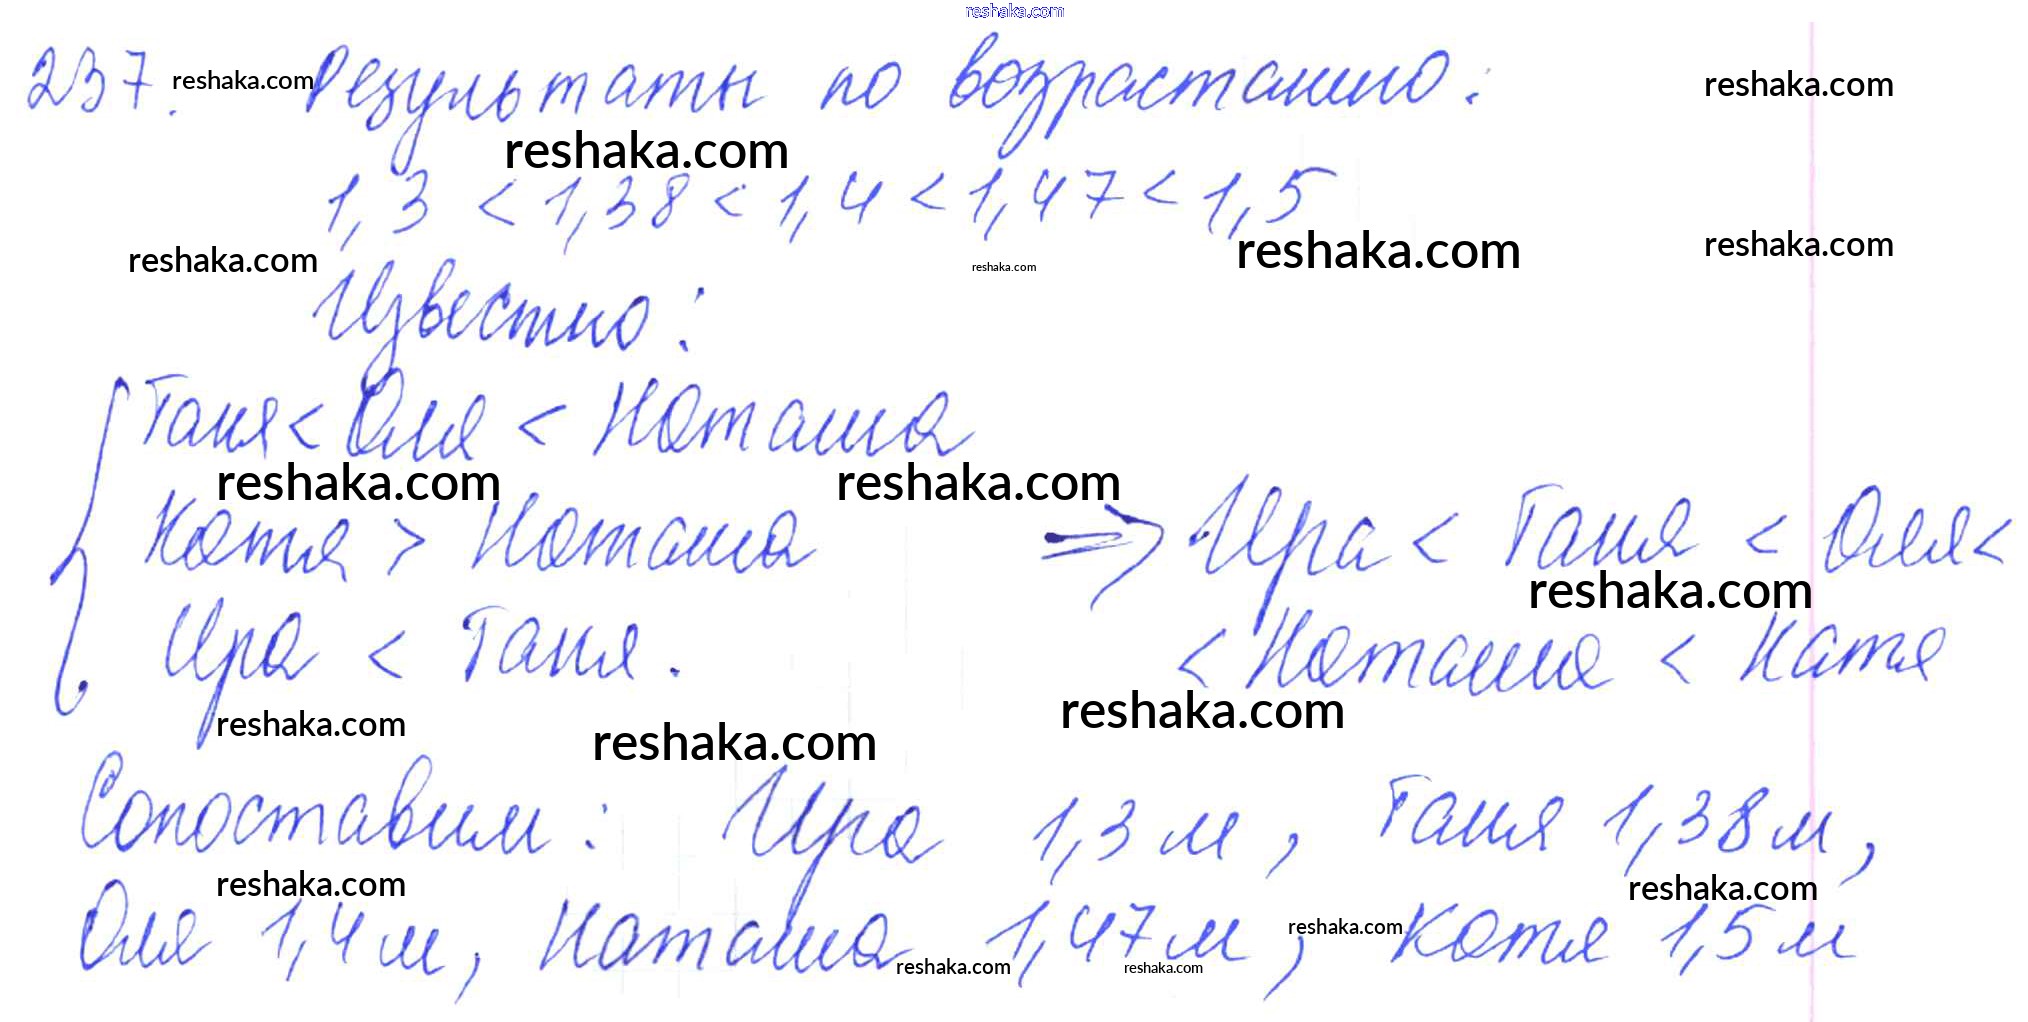 reshaka.com
237. reshaka.com Результаты по возрастанию: reshaka.com
reshaka.com
1,3 < 1,38 < 1,4 < 1,47 < 1,5
reshaka.com reshaka.com reshaka.com reshaka.com
Известно:
Таня < Оля < Наташа
reshaka.com reshaka.com
Катя > Наташа => Ира < Таня < Оля <
reshaka.com
Ира < Таня. < Наташа < Катя
reshaka.com reshaka.com reshaka.com
Сопоставим: Ира 1,3 м, Таня 1,38 м,
reshaka.com reshaka.com
Оля 1,4 м, Наташа 1,47 м, reshaka.com Катя 1,5 м
reshaka.com reshaka.com